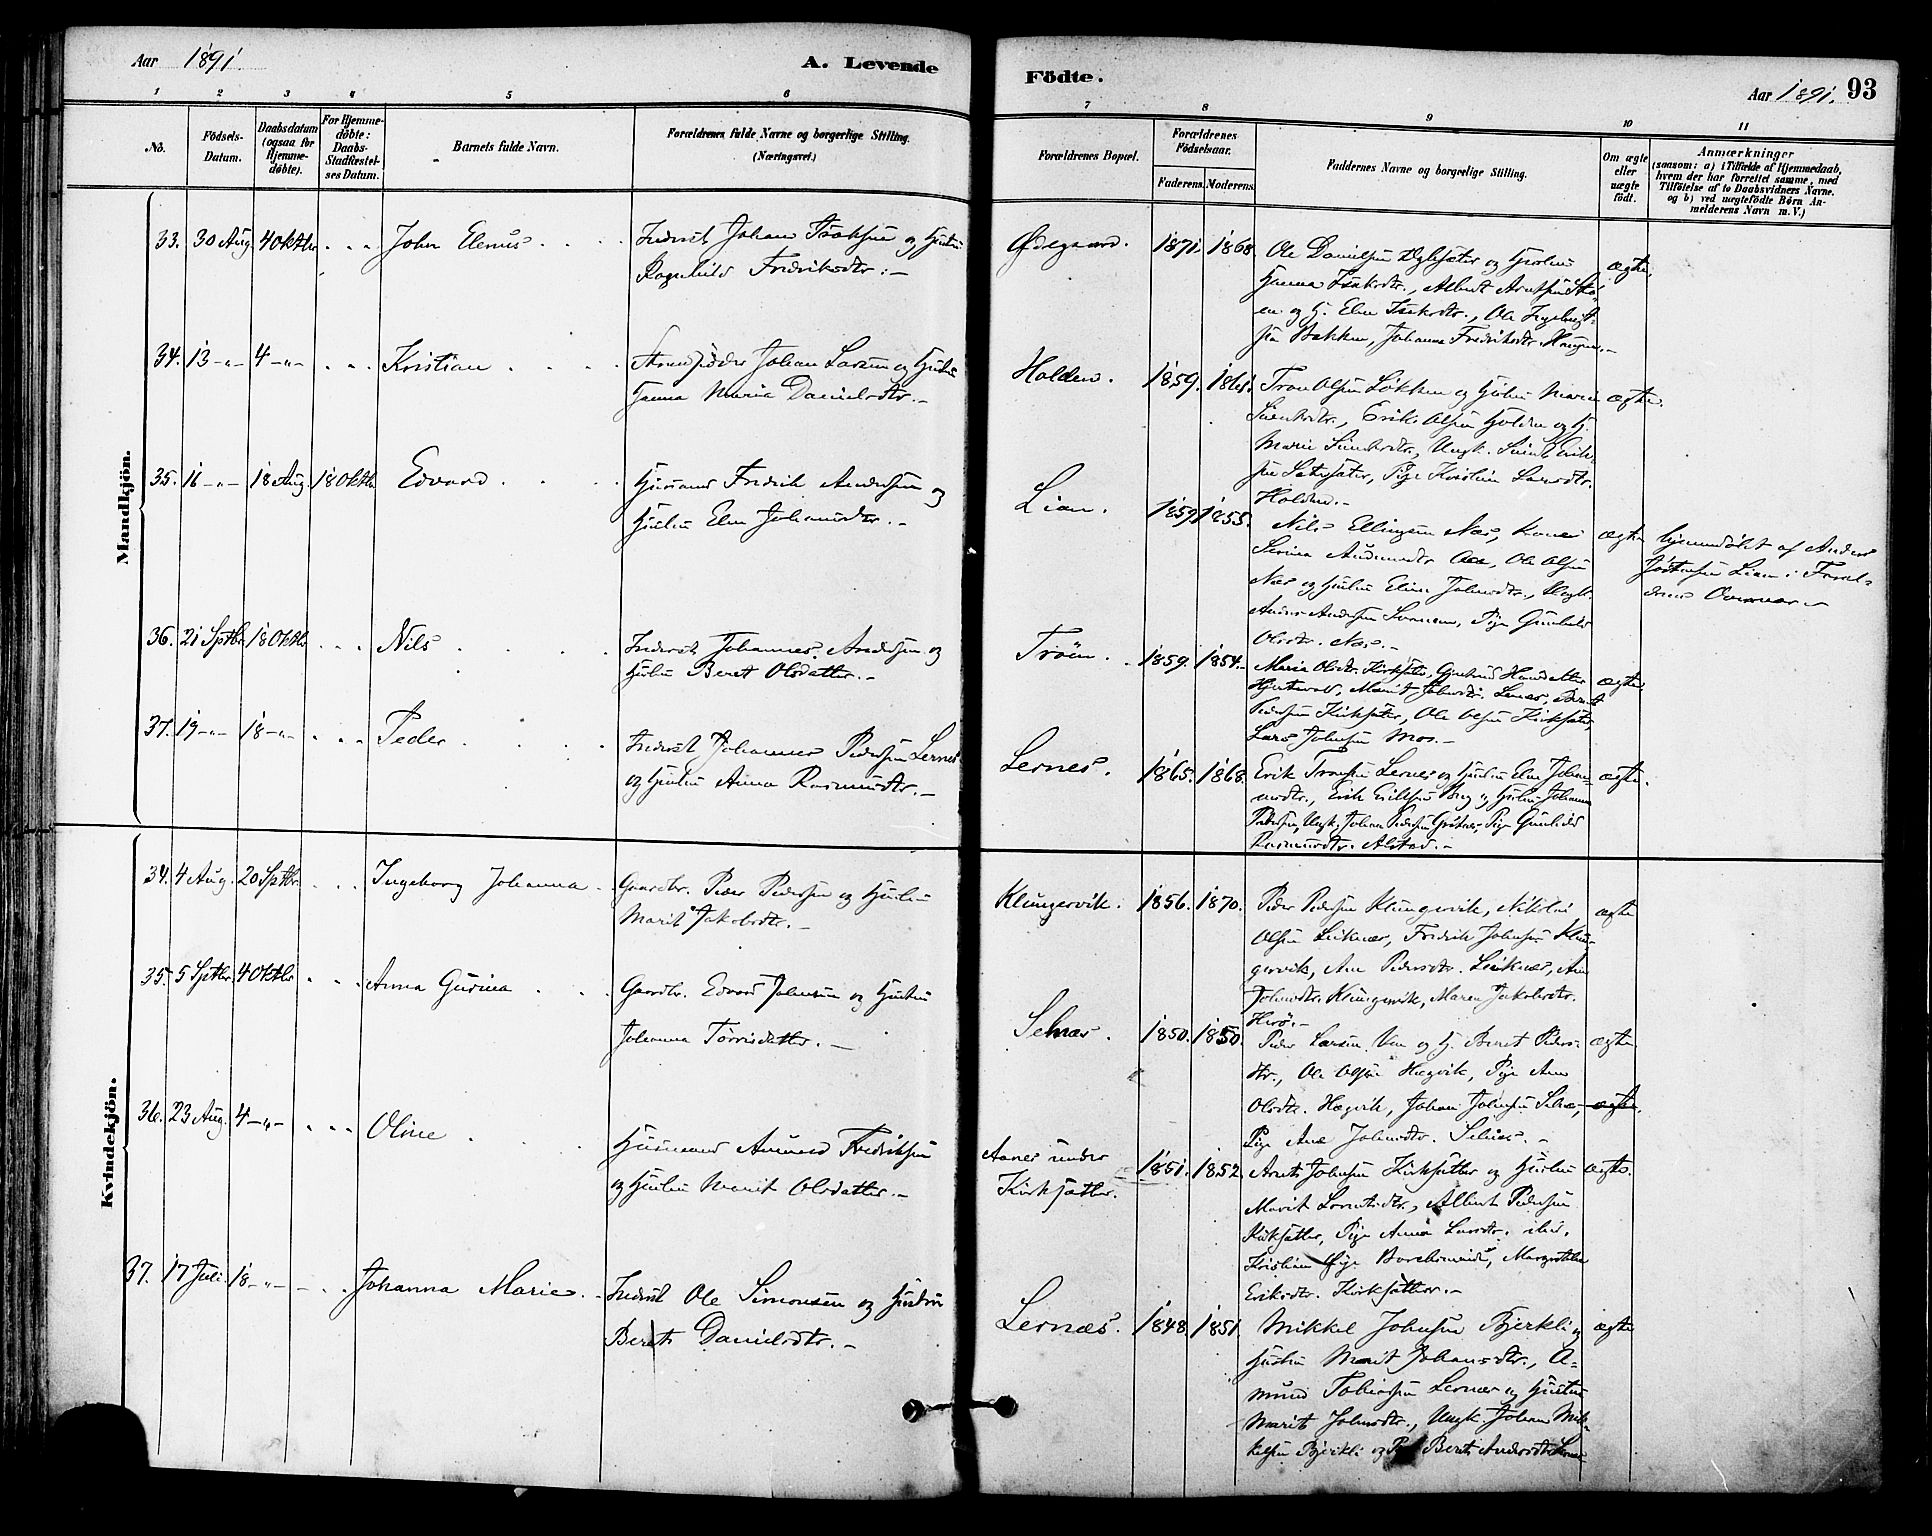 Aar 1891.
A. Levende
Födte.
Aar 1891. 93
1 2 3 4 5 6 7 8 9 10 11
No.
Födsels-
Datum.
Daabsdatum
(ogsaa for
Hjemme-
döbte).
For Hjemme-
döbte:
Daabs-
Stadfæstel-
ses Datum.
Barnets fulde Navn.
Forældrenes fulde Navne og borgerlige Stilling.
(Næringsvei.)
Forældrenes Bopæl.
Forældrenes
Födselsaar.
Faderens. Moderens.
Faddernes Navne og borgerlige Stilling.
Om ægte
eller
uægte
födt.
Anmærkninger
(saasom: a) i Tilfælde af Hjemmedaab,
hvem der har forrettet samme, med
Tilföielse af to Daabsvidners Navne.
og b) ved uægtefödte Börn An-
melderens Navn m. V.)
Mandkjön.
33. 30 Aug 4 Oktbr John Elenus Inderst Johan Isaksen og Hustru
Ragnhild Fredriksdtr. Ødegaard. 1871. 1868.
Ole Danielsen og Hustru
Hanna Isaksdtr., Albert Arntsen
en og H. Elen Isaksdtr., Ole Ingebrigt-
sen Bakken, Johanna Fredriksdtr. Haugen.
ægte.
34. 13 -"- 4 -"- Kristian Johan Larsen og Hustru
Hanna Maria Danielsdtr. Holden. 1859. 1861.
Tron Olsen Løkken og Hustru Maren
Erik Olsen Holden og H.
Marie Ungk. Erik-
sen Pige Kristine Larsdtr.
Holden.
ægte.
35. 16 -"- 18 Aug. 18 Oktbr Edvard Husmand Fredrik Andersen og
Hustru Elen Johansdtr. Lian. 1859 1855.
Nils Ellingsen Næs, Kone
Serina Aa, Ole Olsen
Næs og Hustru Elen Johnsdtr., Ungk.
Anders Andersen Svanem, Pige Gunhild
Olsdtr. Næs.
ægte hjemmedøbt af Anders
Lian i Foræl-
drenes Overvær
36. 21 Sptbr 18 Oktbr Nils Inderst Johannes Andersen og
Hustru Beret Olsdatter. Trøen. 1859. 1854.
Maria Olsdtr. Kirksæter,
Marit Johnsdtr. Lernes, Bernt
Pedersen Kirksæter, Ole Olsen Kirksæter,
Lars Johnsen Mo.
ægte
37. 19 -"- 18 -"- Peder Inderst Johannes Pedersen Lernes
og Hustru Anna Rasmusdtr. Lernes. 1865. 1868.
Erik Tronsen Lernes og Hustru Elen Johan-
nesdtr., Erik Eriksen Berg og Hustru Johanna
Pedersen, Ungk. Johan Pedersen Pige Gunhild
Rasmusdtr. Alstad.
ægte.
Kvindekjön.
34. 4 Aug. 20 Sptbr. Ingeborg Johanna Gaardbr. Peder Pedersen og Hustru
Marit Jakobsdtr. Klungervik. 1856. 1870.
Peder Pedersen Klungervik, Nikolai
Olsen Leiknes, Fredrik Johnsen Klun-
gervik, Ane Pedersdtr. Leiknes, Ane
Johnsdtr. Klungervik, Maren Jakobsdtr.
Herø.
ægte
35. 5 Sptbr. 4 Oktbr Anna Gurina Gaardbr. Edvard Johnsen og Hustru
Johanna Tørrisdatter. Selnes. 1850. 1850.
Peder Larsen og H. Beret Peders-
dtr., Ole Olsen Hægvik, Pige Ane
Olsdtr. Hægvik, Johan Johnsen Selnes, ægte.
Pige Ane Johnsdtr. Selnes.
ægte
36. 23 Aug. 4 -"- Oline Husmand Amund Fredriksen
og Hustru Marit Olsdatter. Aanes under
Kirksætter. 1851. 1852.
Arnt Johnsen Kirksætter og Hustru
Marit Larsdtr., Albert Pedersen
Kirksætter, Pige Anna Larsdtr.
Kristian Margrethe
Eriksdtr. Kirksætter.
ægte.
37. 17 Juli. 18 -"- Johanna Marie Inderst Ole Simonsen og Hustru
Berit Danielsdtr. Lernæs. 1848. 1851.
Mikkel Johnsen Bjerkli og
Hustru Marit Johansdtr., A-
mund Tobiassen Lernes og Hustru
Marit Johnsdtr., Ungk. Johan Mik-
kelsen Bjerkli og Pige Berit Andersdtr. Lernes
ægte